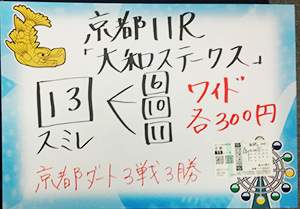 京都11R
「大和ステークス」
13 < 6 10 11 ワイド
各300円
スミレ
京都ダート3戦3勝